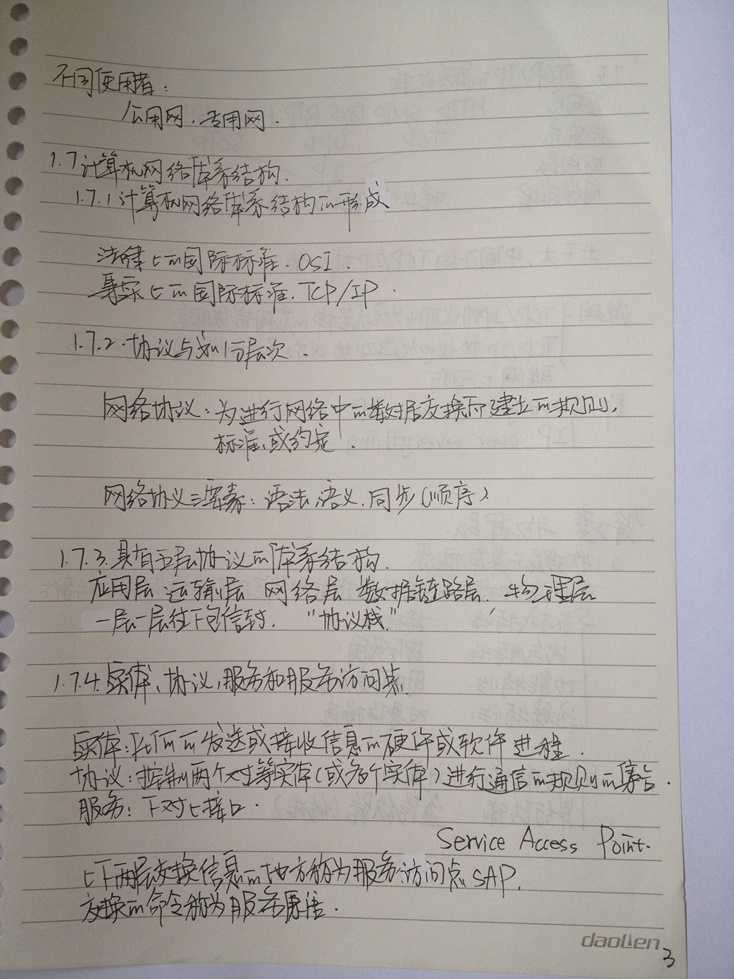 不同使用者：
公用网、专用网.
1.7 计算机网络体系结构.
1.7.1 计算机网络体系结构的形成
法律上的国际标准. OSI.
事实上的国际标准. TCP/IP.
1.7.2. 协议与划分层次.
网络协议：为进行网络中的数据交换而建立的规则,
标准或约定.
网络协议三要素：语法、语义、同步(顺序)
1.7.3. 具有五层协议的体系结构.
应用层 运输层 网络层 数据链路层. 物理层
一层一层往下包信封. “协议栈”
1.7.4. 实体、协议、服务和服务访问点.
实体：任何可发送或接收信息的硬件或软件进程.
协议：控制两个对等实体(或多个实体)进行通信的规则的集合.
服务：下对上接口.
Service Access Point.
上下两层交换信息的地方称为服务访问点 SAP.
交换的命令称为服务原语.
daolien
3